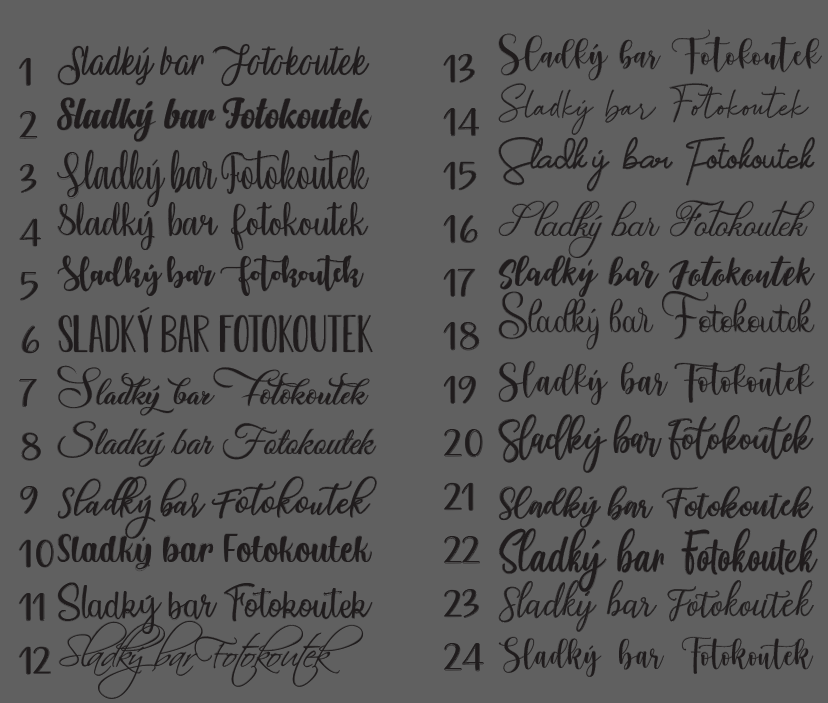 1 Sladký bar Fotokoutek
2 Sladký bar Fotokoutek
3 Sladký bar Fotokoutek
4 Sladký bar fotokoutek
5 Sladký bar fotokoutek
6 SLADKÝ BAR FOTOKOUTEK
7 Sladký bar Fotokoutek
8 Sladký bar Fotokoutek
9 Sladký bar Fotokoutek
10 Sladký bar Fotokoutek
11 Sladký bar Fotokoutek
12 Sladký bar Fotokoutek
13 Sladký bar Fotokoutek
14 Sladký bar Fotokoutek
15 Sladký bar Fotokoutek
16 Sladký bar Fotokoutek
17 Sladký bar Fotokoutek
18 Sladký bar Fotokoutek
19 Sladký bar Fotokoutek
20 Sladký bar fotokoutek
21 Sladký bar Fotokoutek
22 Sladký bar Fotokoutek
23 Sladký bar Fotokoutek
24 Sladký bar Fotokoutek